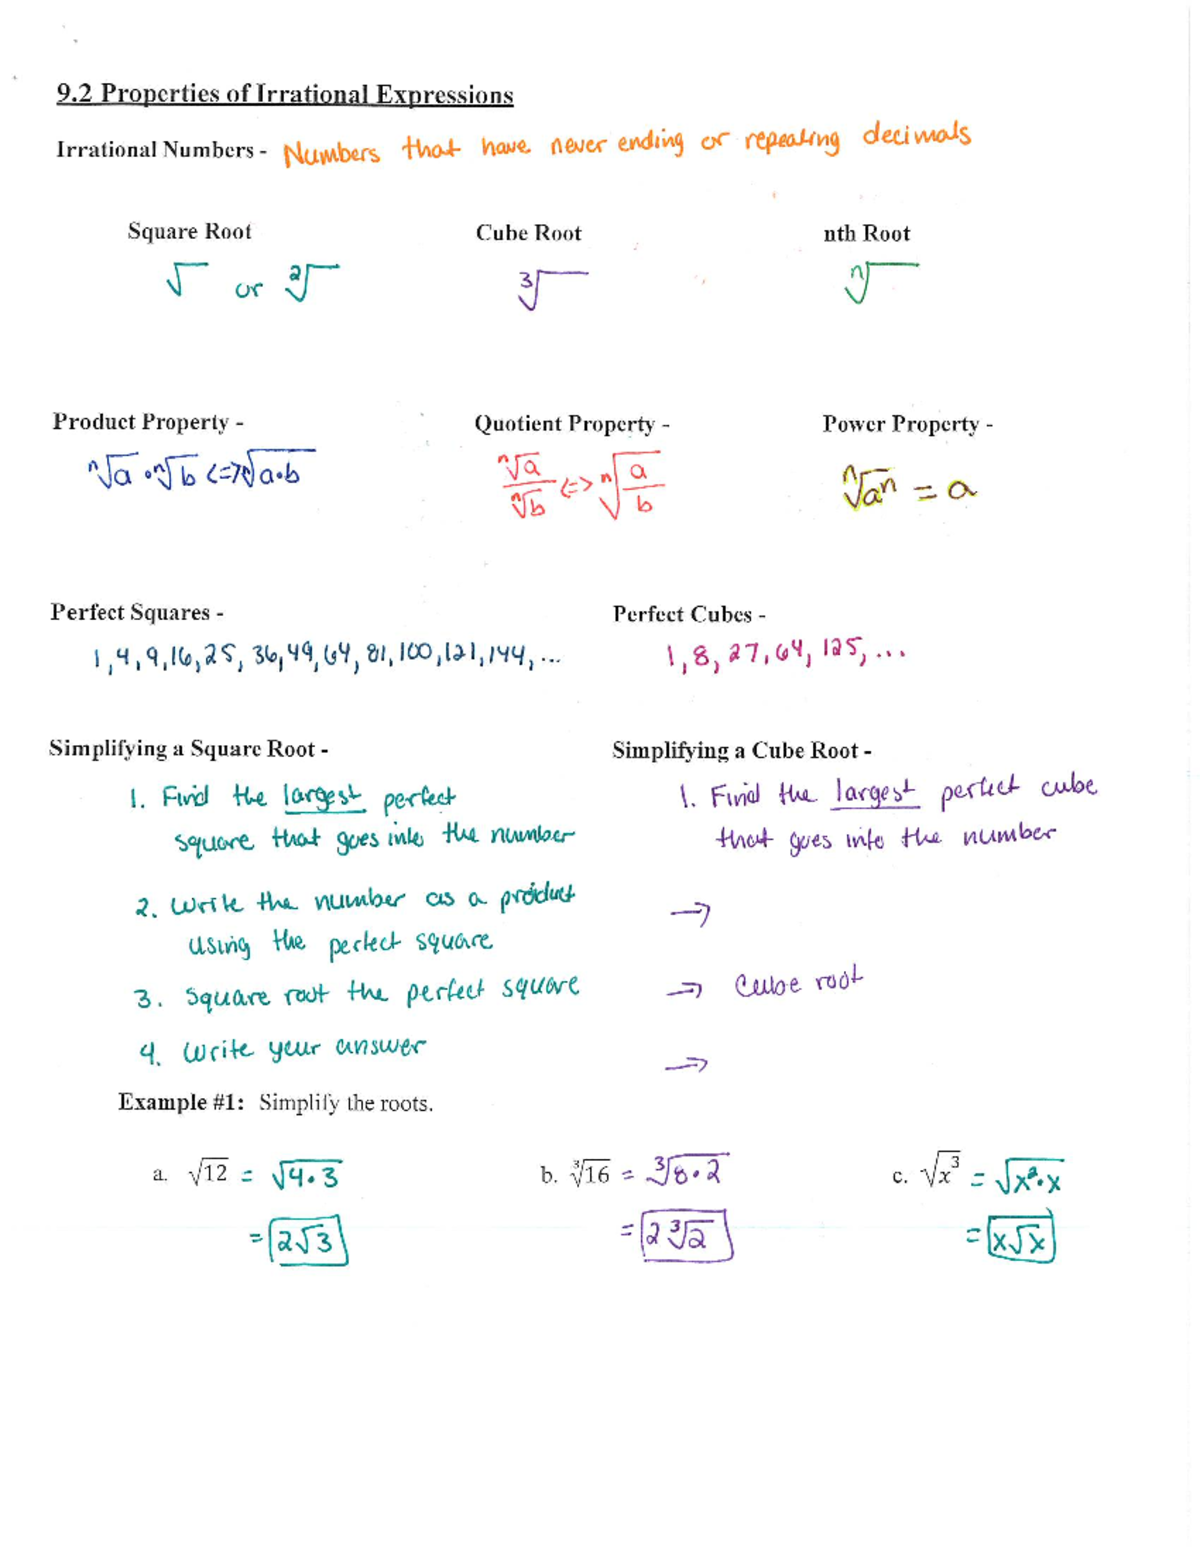 9.2 Properties of Irrational Expressions
Irrational Numbers - Numbers that have never ending or repeating decimals
Square Root Cube Root nth Root
√ or ²√ ³√ ⁿ√
Product Property - Quotient Property - Power Property -
ⁿ√a · ⁿ√b <=> ⁿ√a·b ⁿ√a / ⁿ√b <=> ⁿ√(a/b) ⁿ√aⁿ = a
Perfect Squares - Perfect Cubes -
1, 4, 9, 16, 25, 36, 49, 64, 81, 100, 121, 144, ... 1, 8, 27, 64, 125, ...
Simplifying a Square Root - Simplifying a Cube Root -
1. Find the largest perfect
square that goes into the number
2. Write the number as a product
using the perfect square
3. Square root the perfect square
4. Write your answer
1. Find the largest perfect cube
that goes into the number
→
→ Cube root
→
Example #1: Simplify the roots.
a. √12 = √4·3
= 2√3
b. ³√16 = ³√8·2
= 2 ³√2
c. √x³ = √x²·x
= x√x